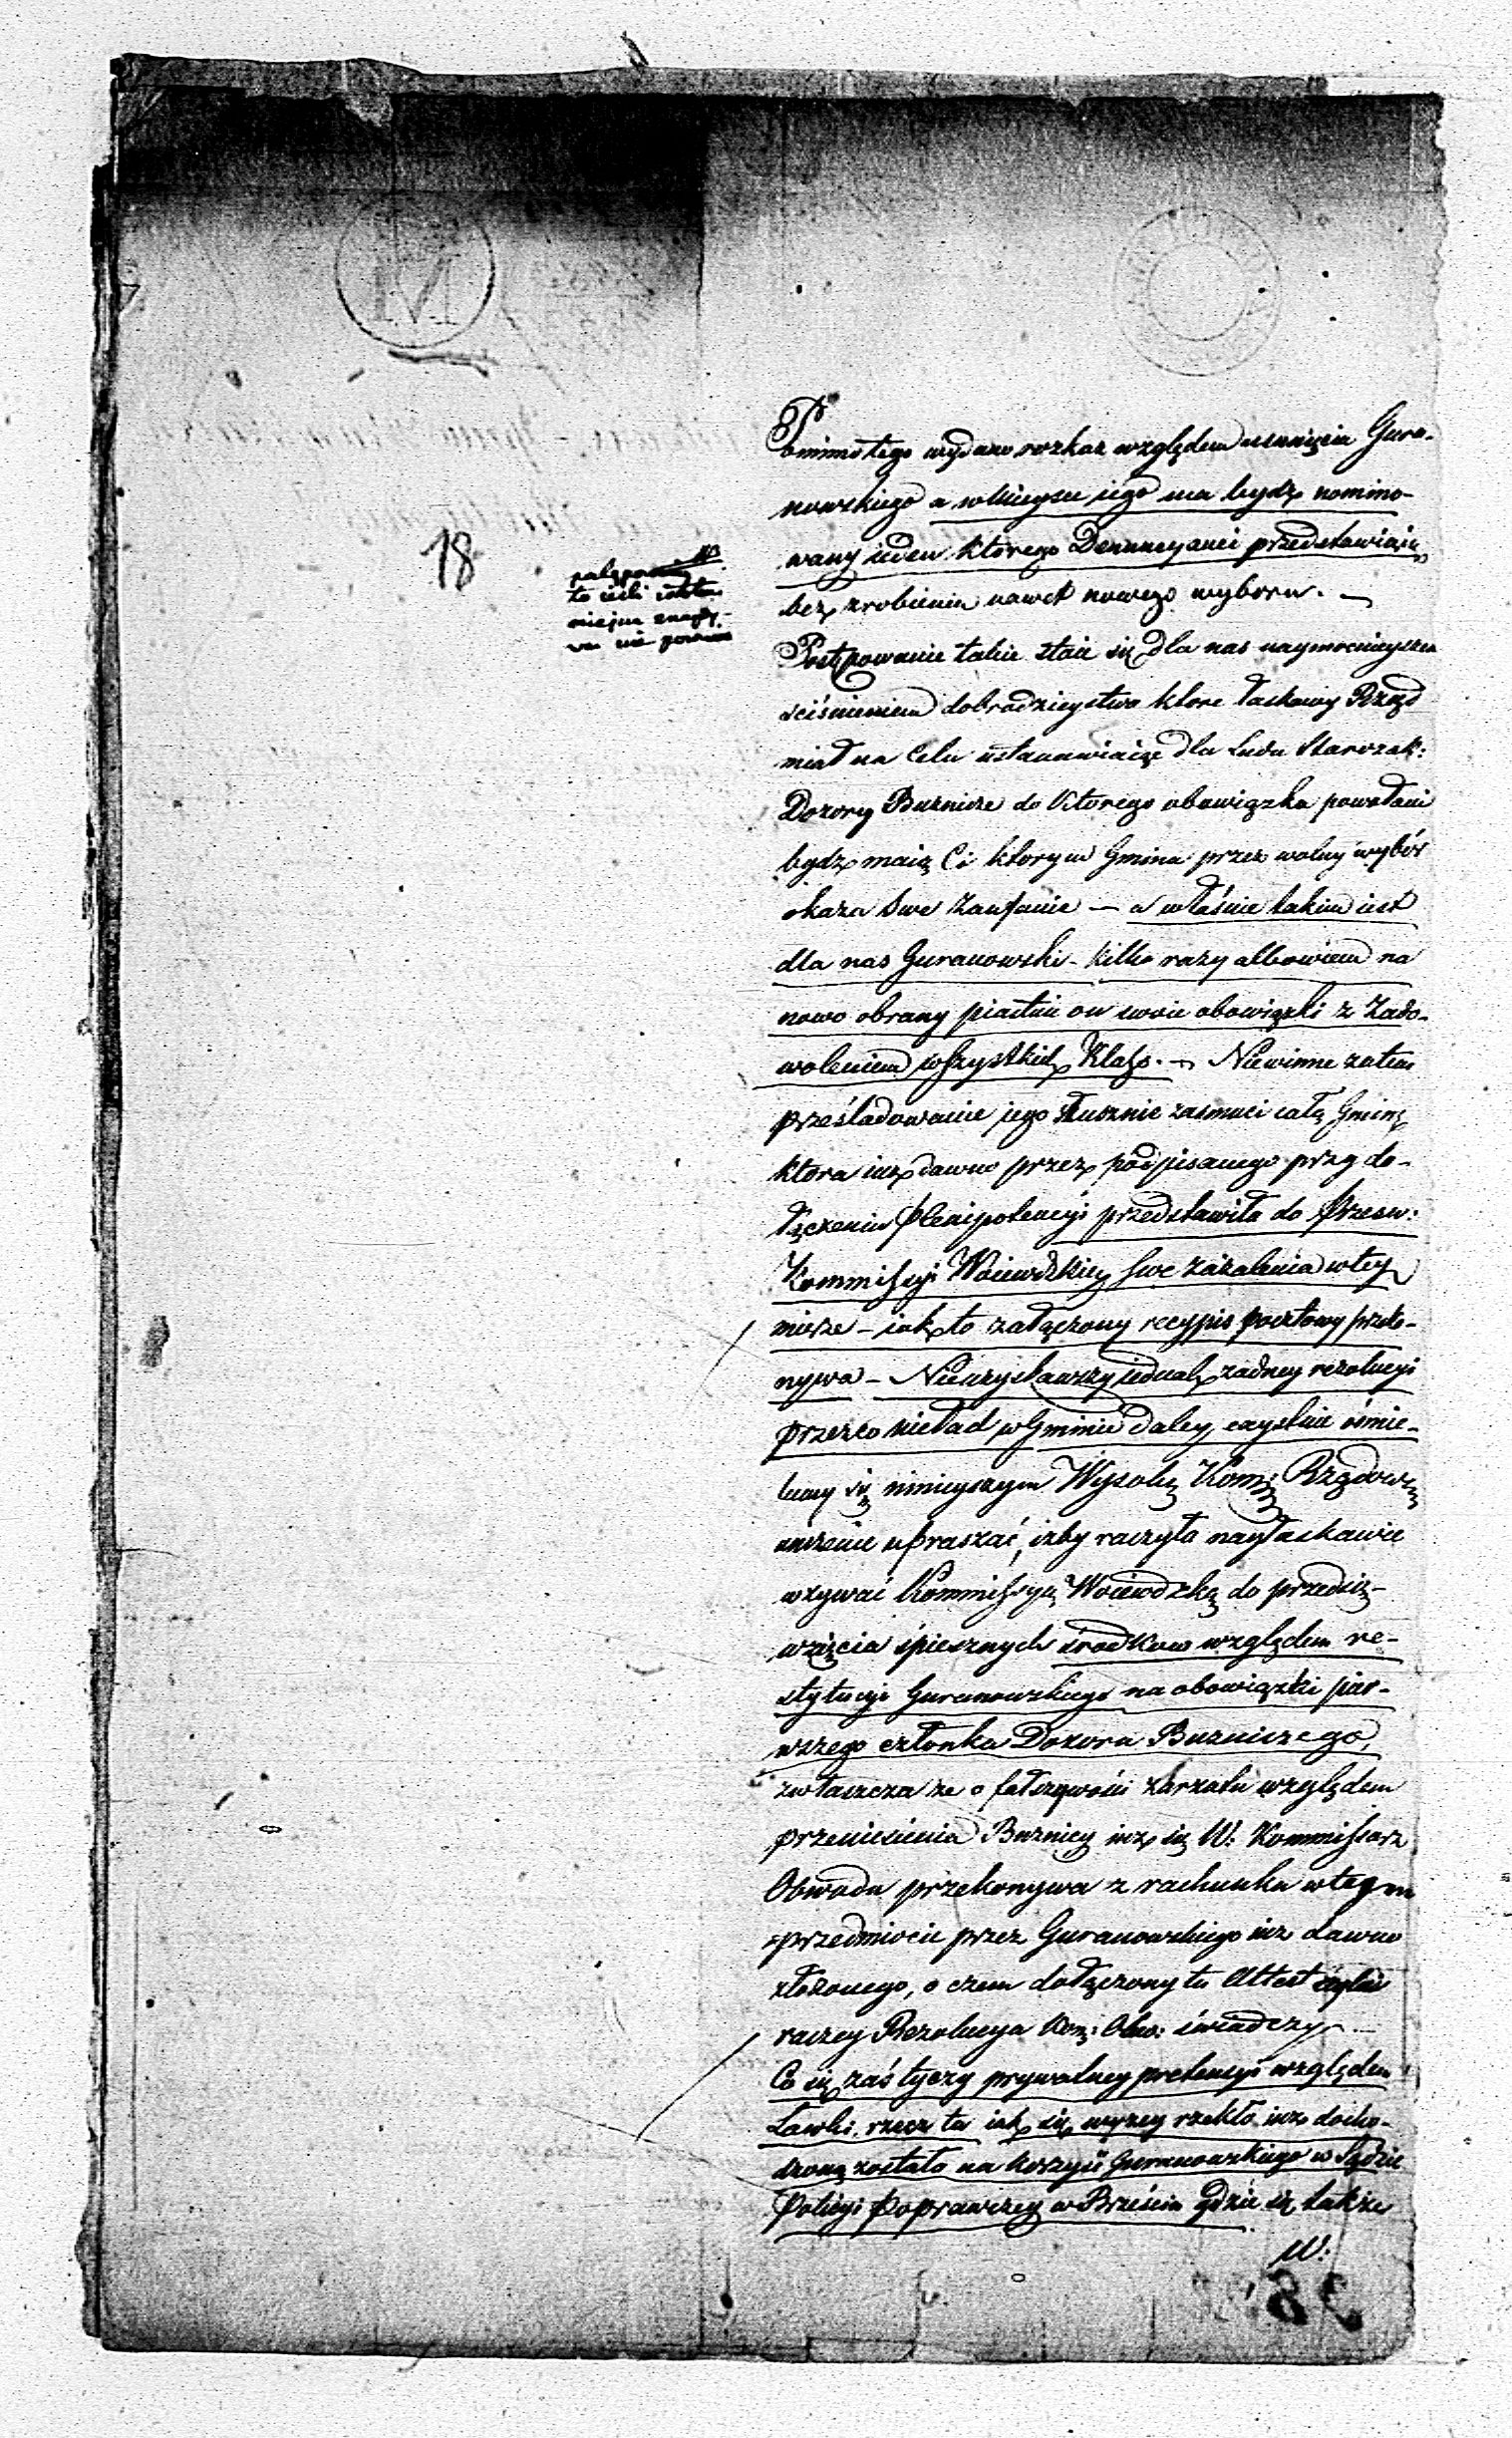 18
NB
to iesli
Pomimo tego wydano rozkaz względem usunięcia Gura-
nowskiego a w mieysce iego ma bydź nomino-
wany ieden ktorego Denuncyanci przedstawiaią
bez zrobienia nawet nowego wyboru. —
Postępowanie takie staie się dla nas naymocnieyszem
sciśnieniem dobrodzieystwa ktore łaskawy Rząd
miał na Celu ustanawiaiąc dla Ludu Starozak:
Dozory Buznicze do ktorego obowiązku powołani
bydź maią Ci ktorym Gmina przez wolny wybór
okaza swe Zaufanie — a właśnie takim iest
dla nas Guranowski - kilka razy albowiem na
nowo obrany piastuie on swoie obowiązki z Zado-
woleniem wszystkich Klass. — Niewinne zatem
prześladowanie jego słusznie zasmuci całą Gminę
ktora iuż dawno przez podpisanego przy do-
łączeniu Plenipotencyi przedstawiła do Przesw:
Kommissyi Woiewdzkiey swe zażalenia w tey
mierze - iak to załączony recypis pocztowy przeko-
nywa - Nieuzyskawszy iednak żadney rezolucyi
przez co nieład w Gminie daley exystuie ośmie-
lamy się ninieyszym Wysoką Kom: Rządową
unizenie upraszać, izby raczyła nayłaskawie
wzywać Kommissyą Woiewdzką do przedsię-
wzięcia śpiesznych środkow względem re-
stytucyi Guranowskiego na obowiązki pier-
wszego członka Dozoru Buzniczego,
zwłaszcza ze o fałszywości zarzutu względem
przeniesienia Buznicy iuż się W: Kommissarz
Obwodu przekonywa z rachunku w tym
przedmiocie przez Guranowskiego iuz dawno
złożonego, o czem dołączony tu Attest czyli
raczey Rezolucya Kom: Obw: świadczy —
Co się zaś tyczy prywatney pretensyi względem
Ławki, rzecz ta iak się wyzey rzekło iuż docho-
dzoną została na koszyii Guranowskiego w Sądzie
Policyi Poprawczey w Brześciu gdzie się także
W: